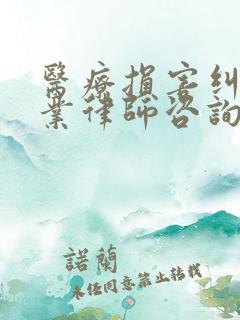 醫療損害糾
業律師咨詢
諾蘭
未任同意禁止转载